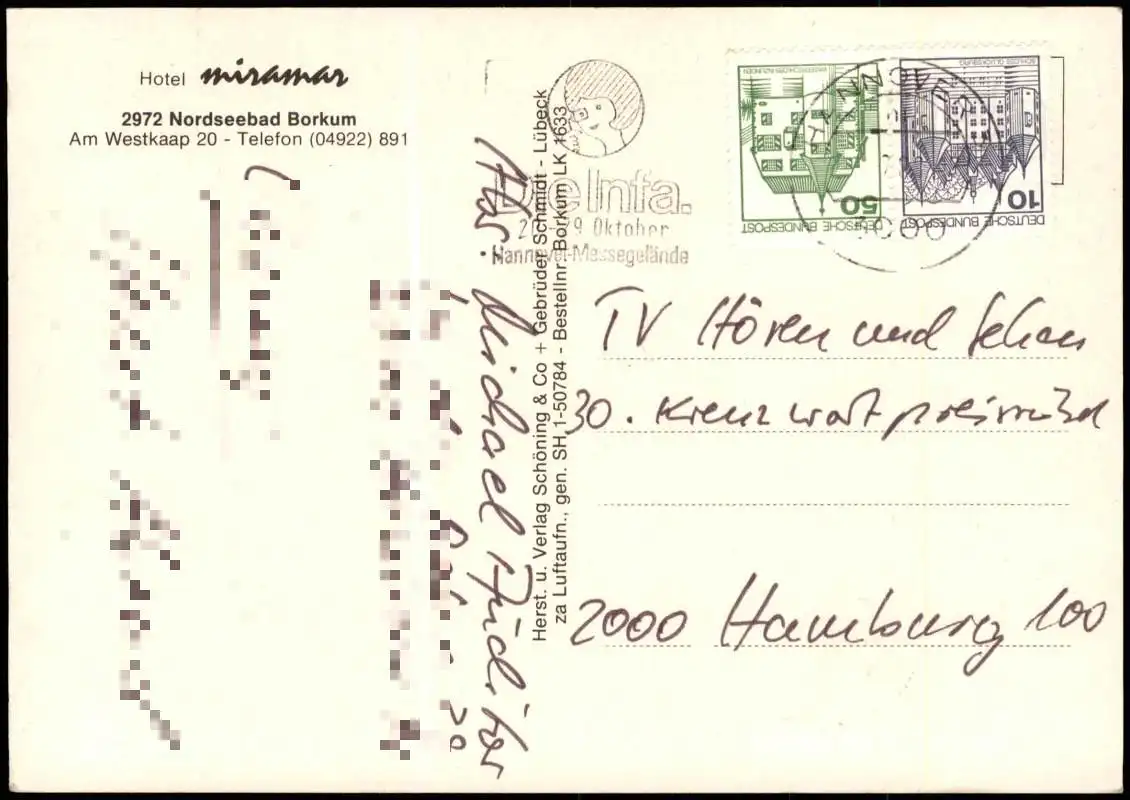 Hotel miramar
2972 Nordseebad Borkum
Am Westkaap 20 - Telefon (04922) 891
Herst. u. Verlag Schöning & Co + Gebrüder Schmidt - Lübeck
za Luftaufn., gen. SH 1-50784 - Bestellnr. Borkum LK 1633
Die Infa.
Oktober
Hannover-Messegelände
3000
WASSERSCHLOSS INZLINGEN
50
DEUTSCHE BUNDESPOST
SCHLOSS GLÜCKSBURG
10
DEUTSCHE BUNDESPOST
Abs. Michael
TV Hören und Sehen
30. Kreuzwort
2000 Hamburg 100